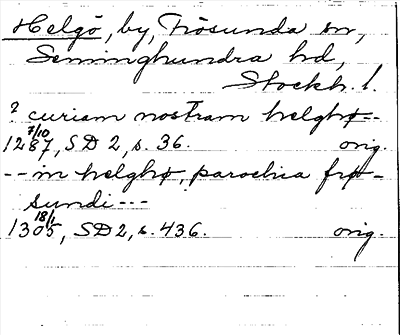 Helgö, by, Frösunda sn,
Seminghundra hd,
Stockh. l.
? curiam nostram helghø--
1287 7/10, SD 2, s. 36. orig.
-- in helghø, parochia frø-
sundi ---
1305 18/1, SD 2, s. 436. orig.